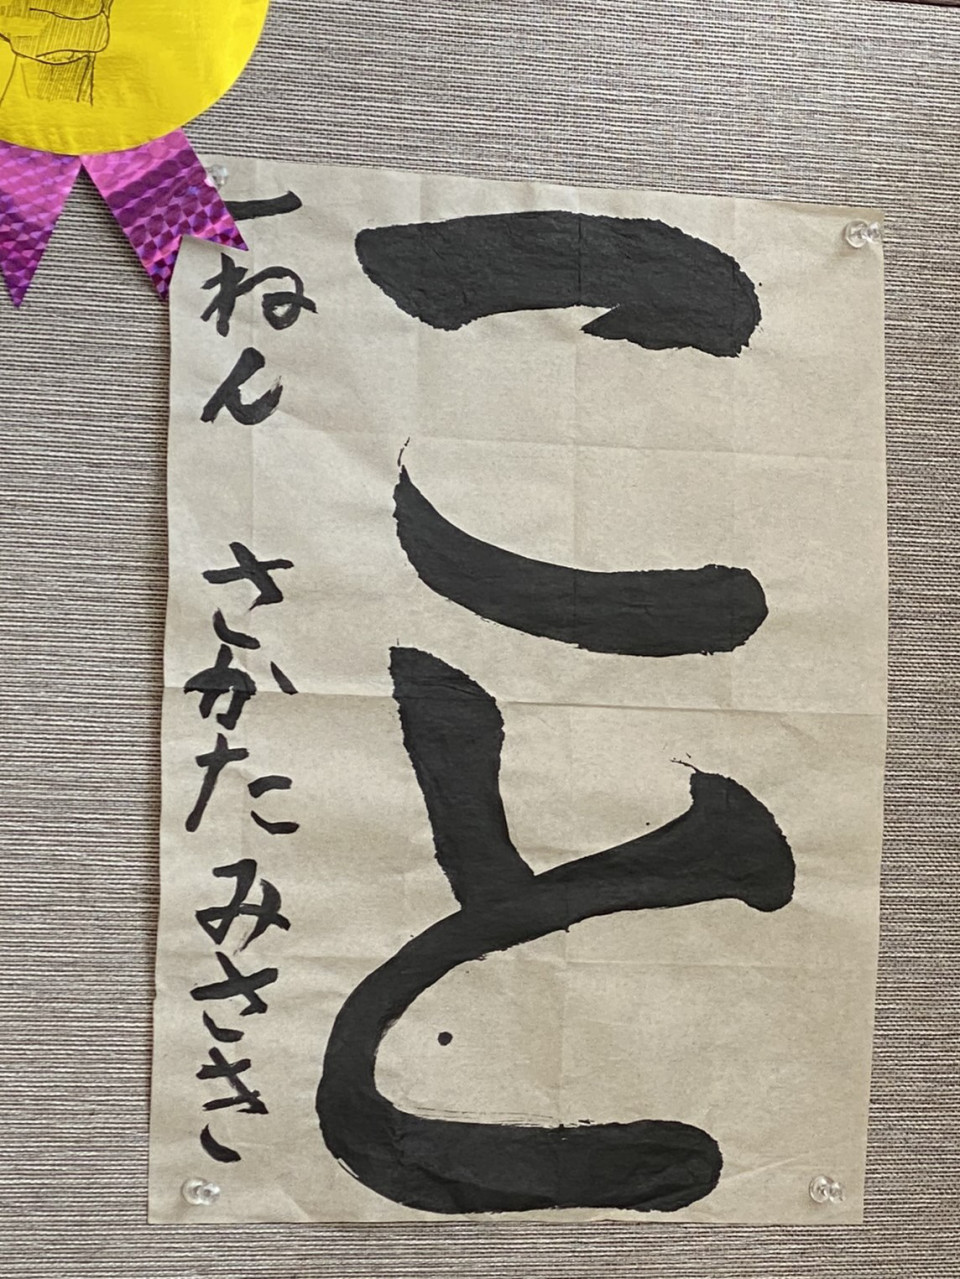 こと
一ねん さかた みさき